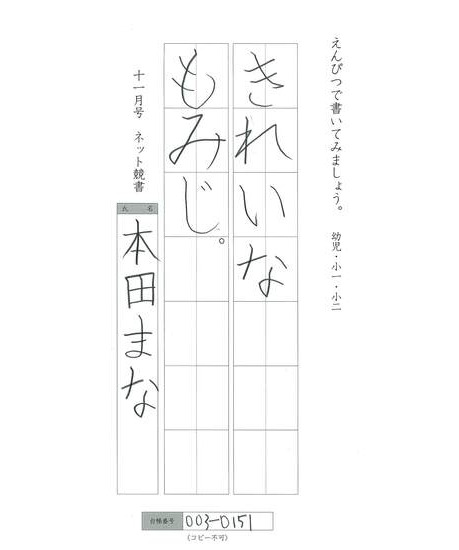 えんぴつで書いてみましょう。 幼児・小一・小二
きれいな
もみじ。
十一月号 ネット競書
氏名
本田まな
台帳番号 003-0151
(コピー不可)